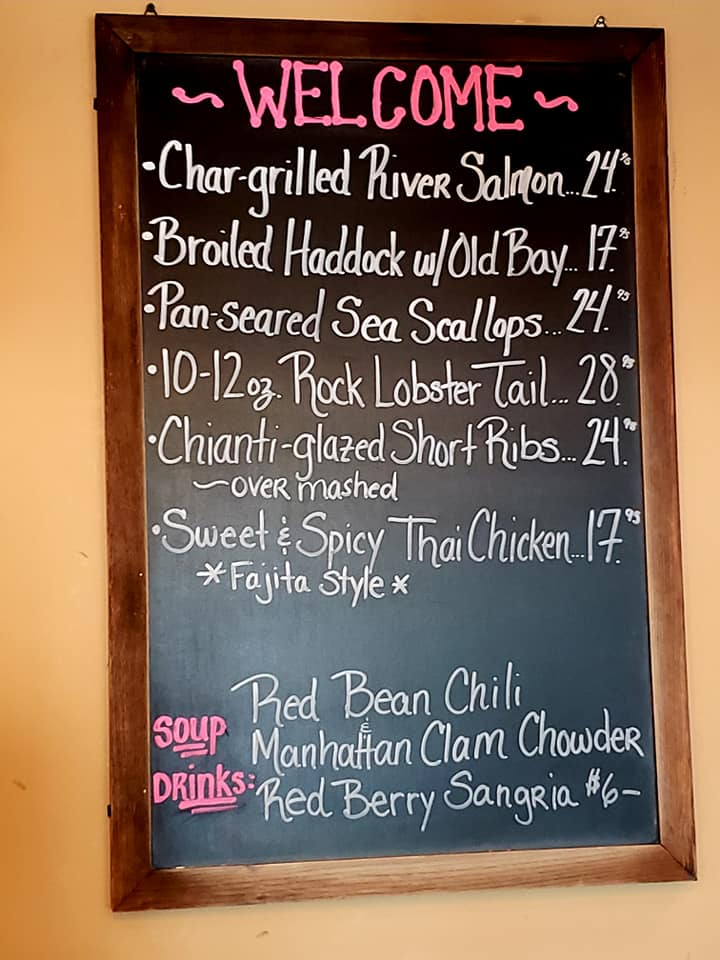 ~ WELCOME ~
•Char-grilled River Salmon...24.95
•Broiled Haddock w/Old Bay... 17.95
•Pan-seared Sea Scallops...24.95
•10-12oz. Rock Lobster Tail... 28.95
•Chianti-glazed Short Ribs...24.95
~over mashed
•Sweet & Spicy Thai Chicken...17.95
*Fajita Style*
Soup Red Bean Chili
&
Manhattan Clam Chowder
Drinks: Red Berry Sangria $6-